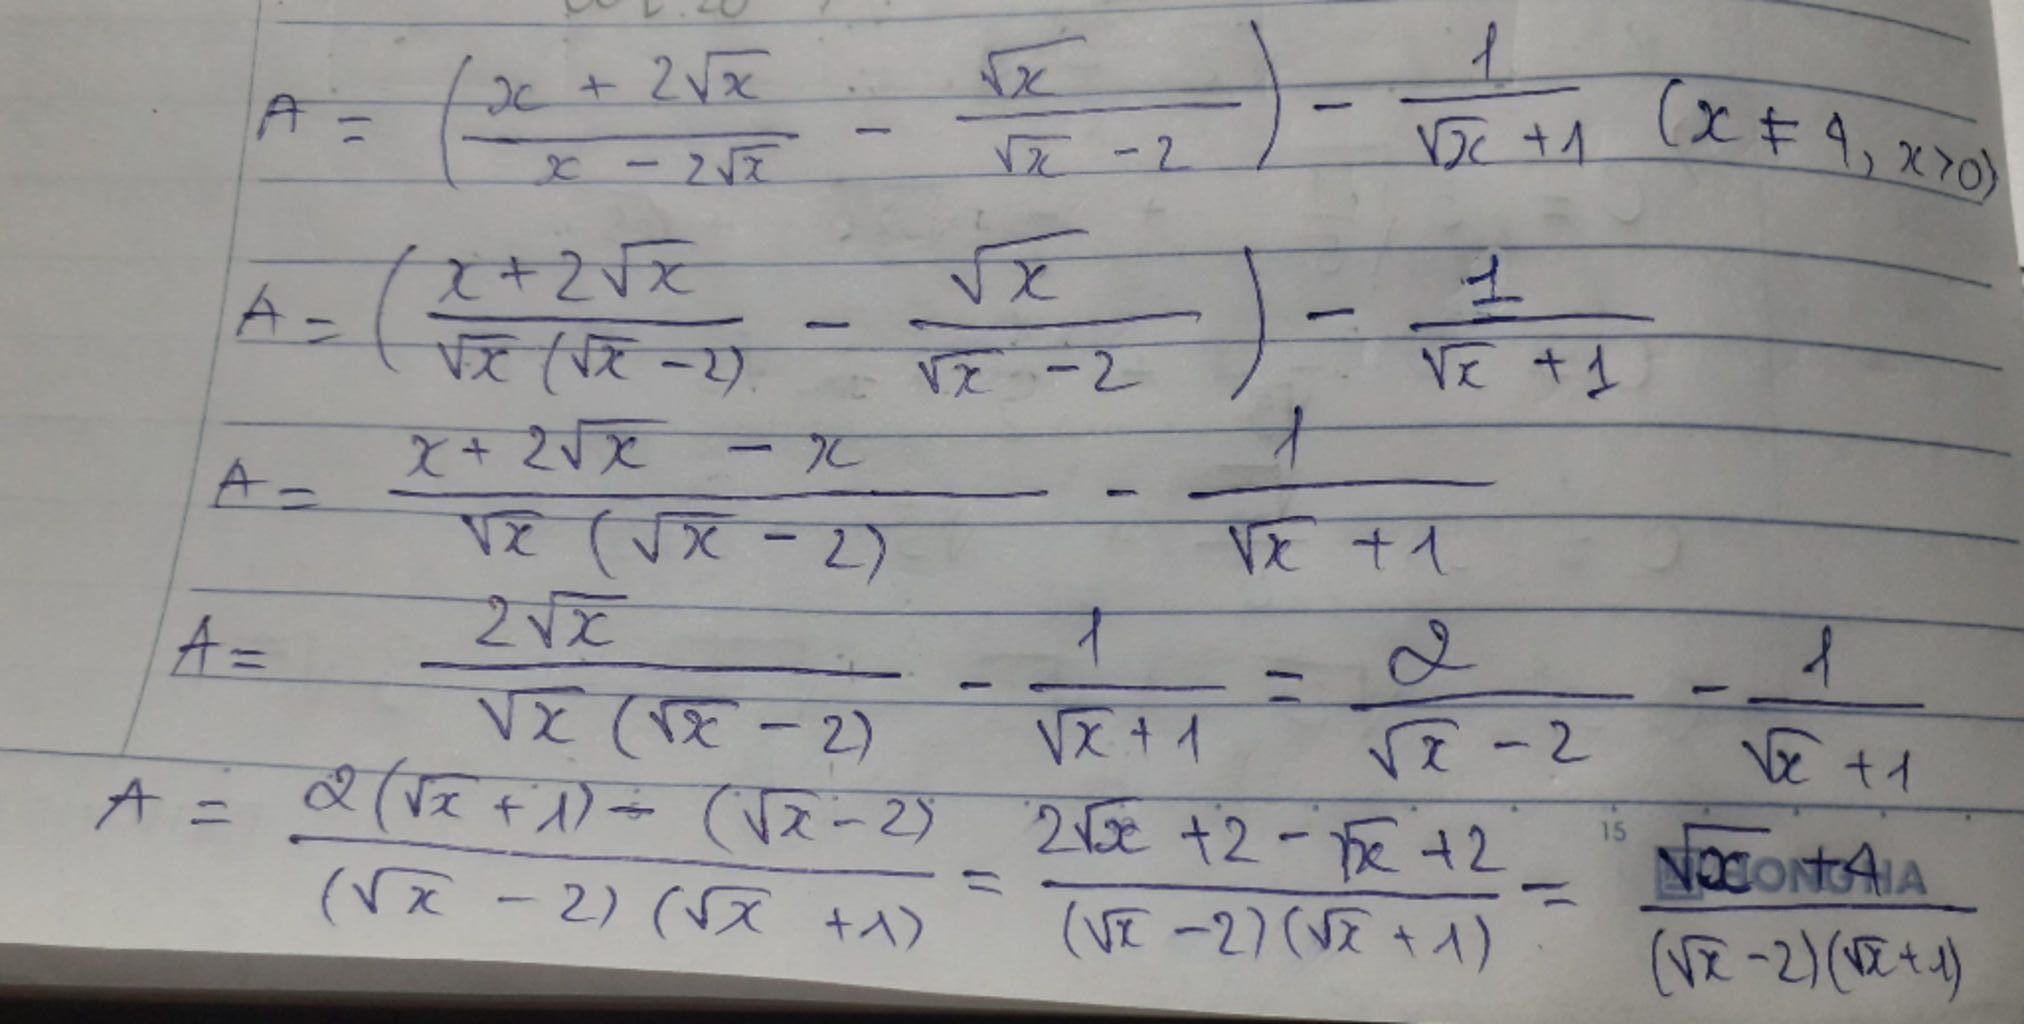 A = ( (x + 2√x)/(x - 2√x) - √x/(√x - 2) ) - 1/(√x + 1) (x ≠ 4, x>0)
A = ( (x + 2√x)/(√x (√x - 2)) - √x/(√x - 2) ) - 1/(√x + 1)
A = (x + 2√x - x)/(√x (√x - 2)) - 1/(√x + 1)
A = 2√x/(√x (√x - 2)) - 1/(√x + 1) = 2/(√x - 2) - 1/(√x + 1)
A = (2(√x + 1) - (√x - 2))/((√x - 2)(√x + 1)) = (2√x + 2 - √x + 2)/((√x - 2)(√x + 1)) = (√x + 4)/((√x - 2)(√x + 1))
15